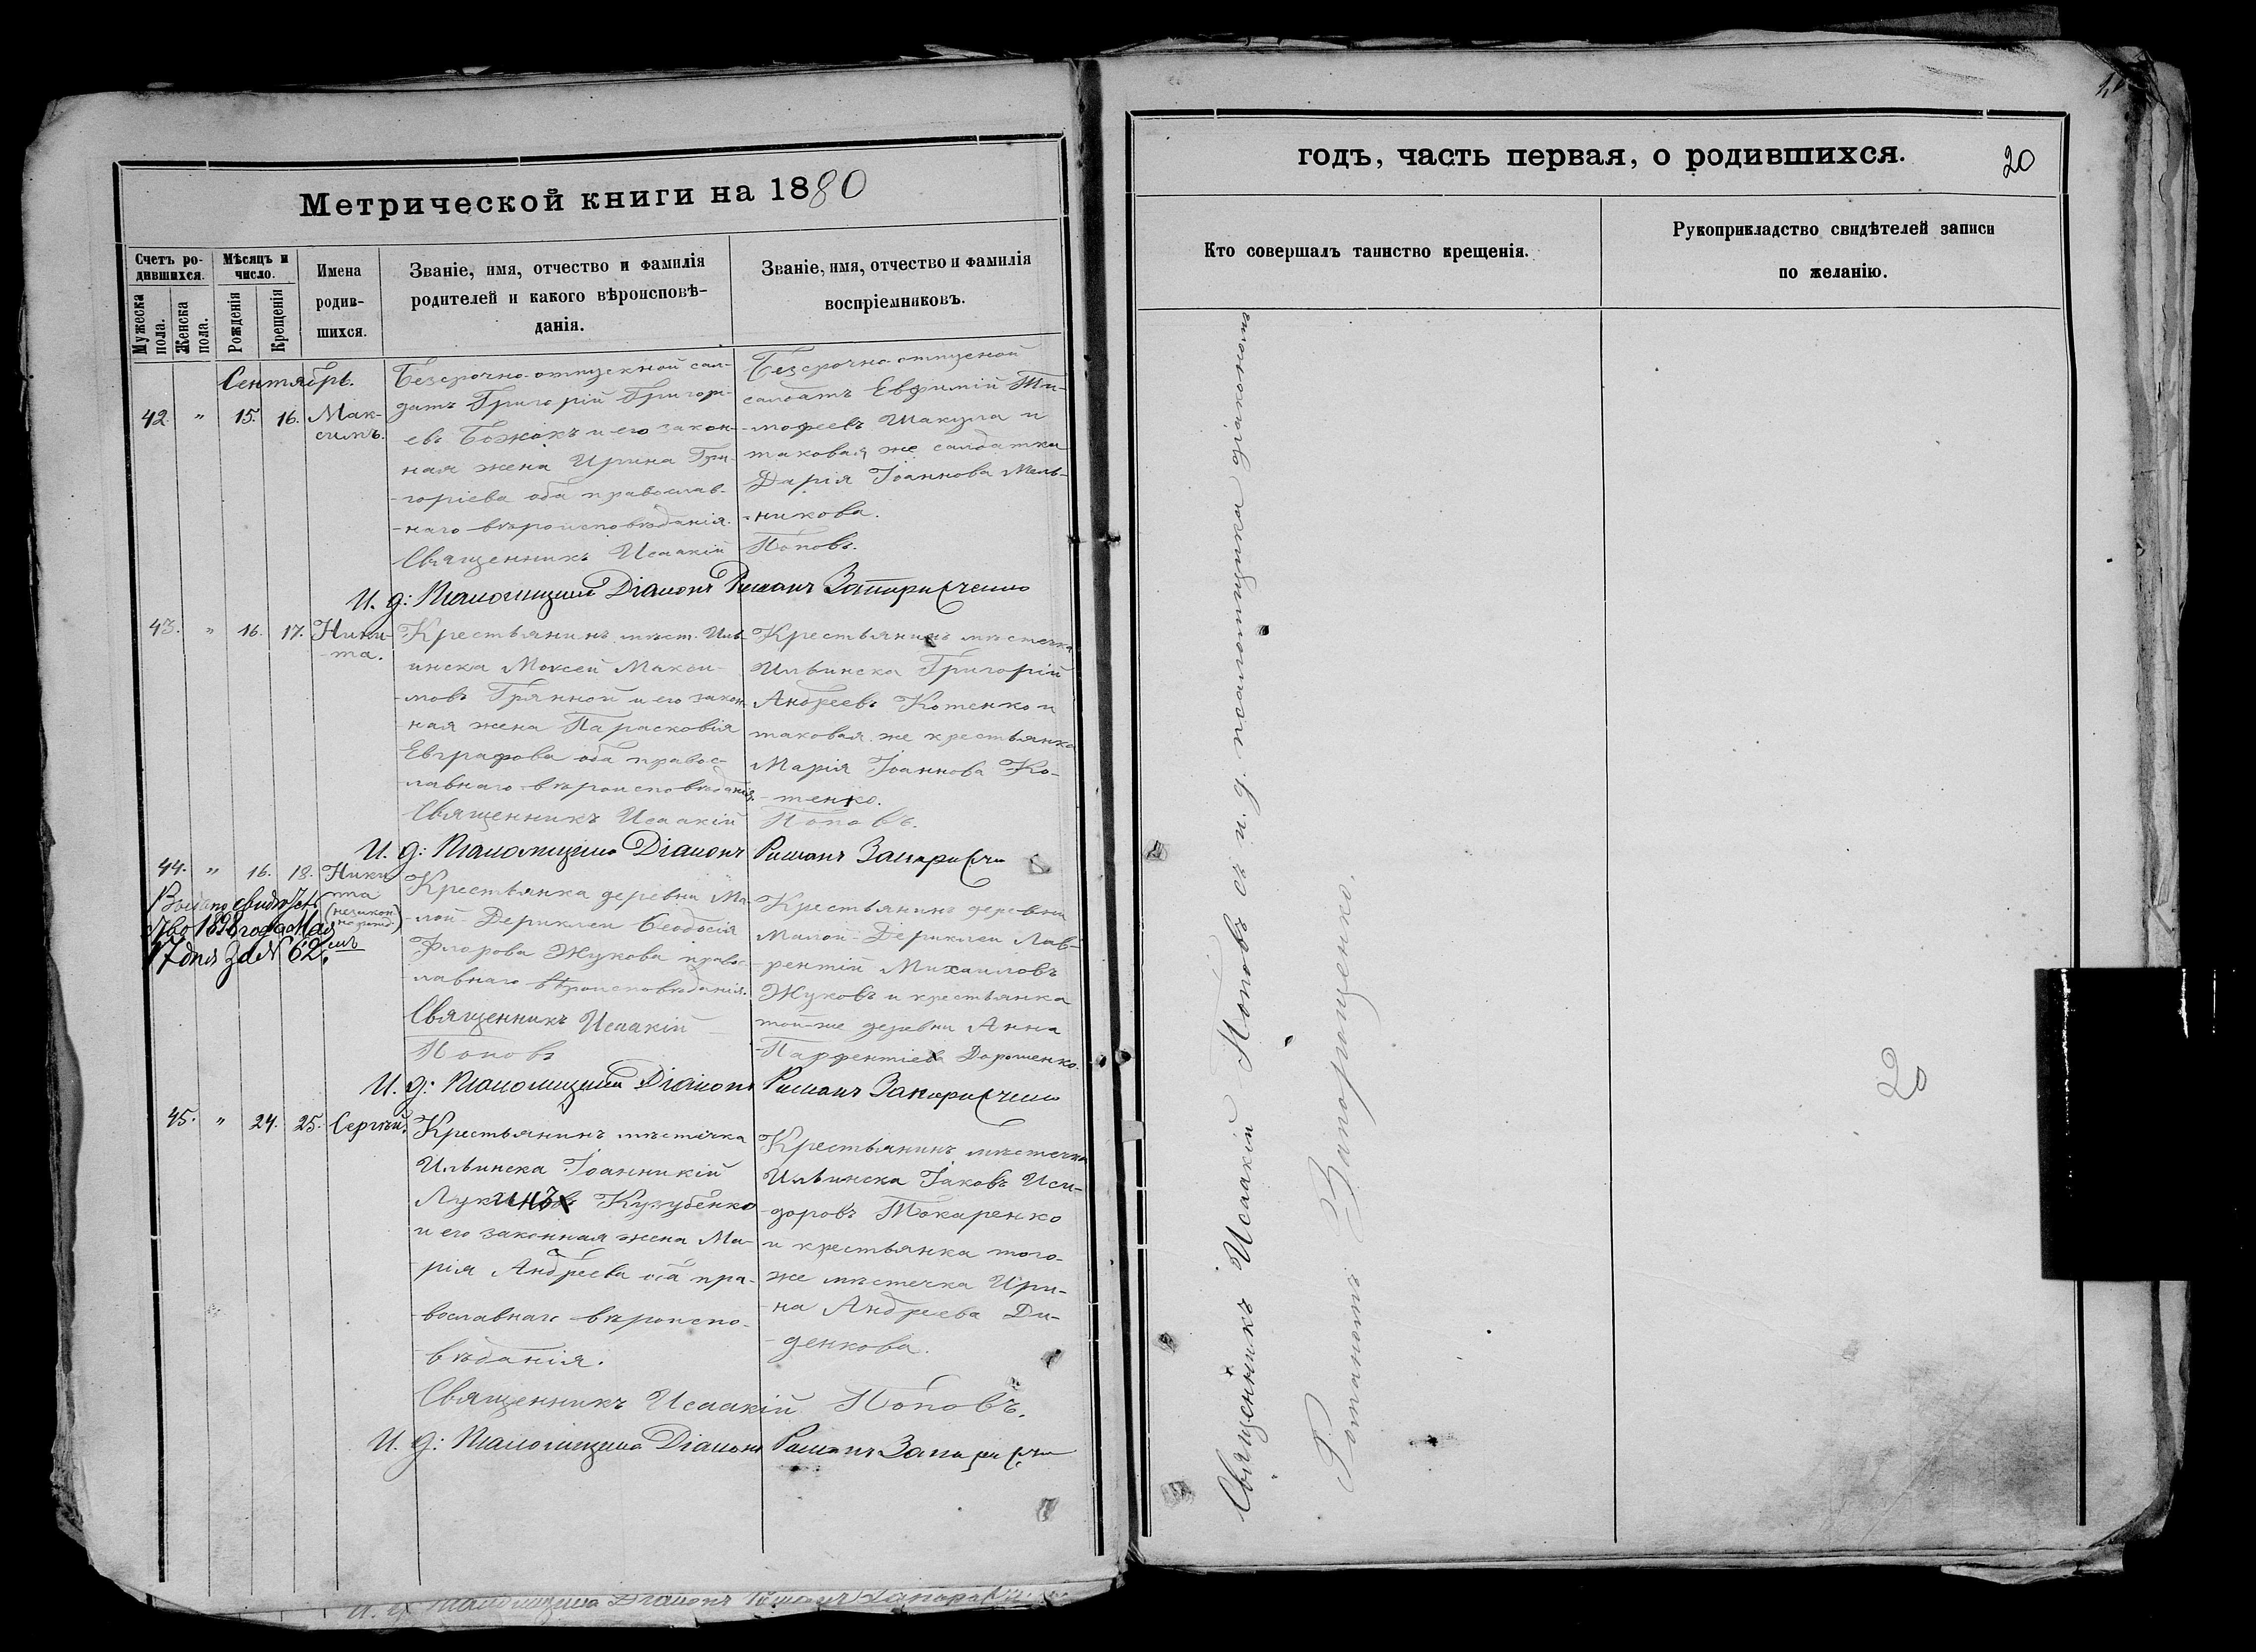 Метрической книги на 1880
Счетъ ро-
дившихся.
Мужеска
пола.
Женска
пола.
Мѣсяцъ и
число.
Рожденія
Крещенія
Имена
родив-
шихся.
Званіе, имя, отчество и фамилія
родителей и какого вѣроисповѣ-
данія.
Званіе, имя, отчество и фамилія
воспріемниковъ.
Сентябрь.
42. " 15. 16. Мак-
симъ.
Безсрочно-отпускной сол-
датъ Григорій Григорі-
евъ Божокъ и его закон-
ная жена Ирина Гри-
-горіева оба православ-
-наго вѣроисповѣданія.
Безсрочно-отпускной
солдатъ Евфимій Ти-
-мофеевъ Шакула и
таковая же солдатка
Дарія Іоаннова Мель-
-никова.
Священникъ Исаакій Поповъ.
И. д: Псаломщика Діаконъ Романъ Запорощенко
43. " 16. 17. Ники-
-та.
Крестьянинъ мѣст. Иль-
инска Моисей Макси-
-мовъ Грянной и его закон-
-ная жена Парасковія
Евграфова оба правос-
-лавнаго вѣроисповѣданія.
Крестьянинъ мѣстечка
Ильинска Григорій
Андреевъ Котенко и
таковая же крестьянка
Марія Іоаннова Ко-
-тенко.
Священникъ Исаакій Поповъ.
И. д: Псаломщика Діаконъ Романъ
44. " 16. 18. Ники
та
(незакон-
Выдано
1898 года Мая
17 дня за № 62.
Крестьянка деревни Ма-
-лой-Дериклеи Ѳеодосія
Флорова Жукова правос-
-лавнаго вѣроисповѣданія.
Крестьянинъ деревни
Малой-Дериклеи Лав-
-рентій Михаиловъ
Жуковъ и крестьянка
той-же деревни Анна
Парфентіева Дорошенко.
Священникъ Исаакій
Поповъ
И. д: Псаломщика Діаконъ Романъ Запорощенко
45. " 24. 25. Сергѣй.
Крестьянинъ мѣстечка
Ильинска Іоанникій
Лукинъ Кулубенко
и его законная жена Ма-
-рія Андреева оба пра-
-вославнаго вѣроиспо-
-вѣданія.
Крестьянинъ мѣстечка
Ильинска Іаковъ Иси-
-доровъ Токаренко
и крестьянка того-
-же мѣстечка Ири-
-на Андреева Ди-
-денкова.
Священникъ Исаакій Поповъ.
И. д: Псаломщика Діаконъ Романъ
годъ, часть первая, о родившихся.
20
Кто совершалъ таинство крещенія.
Рукоприкладство свидѣтелей записи
по желанію.
Священникъ Исаакій Поповъ съ и. д. псаломщика діакономъ
Романомъ Запорощенко.